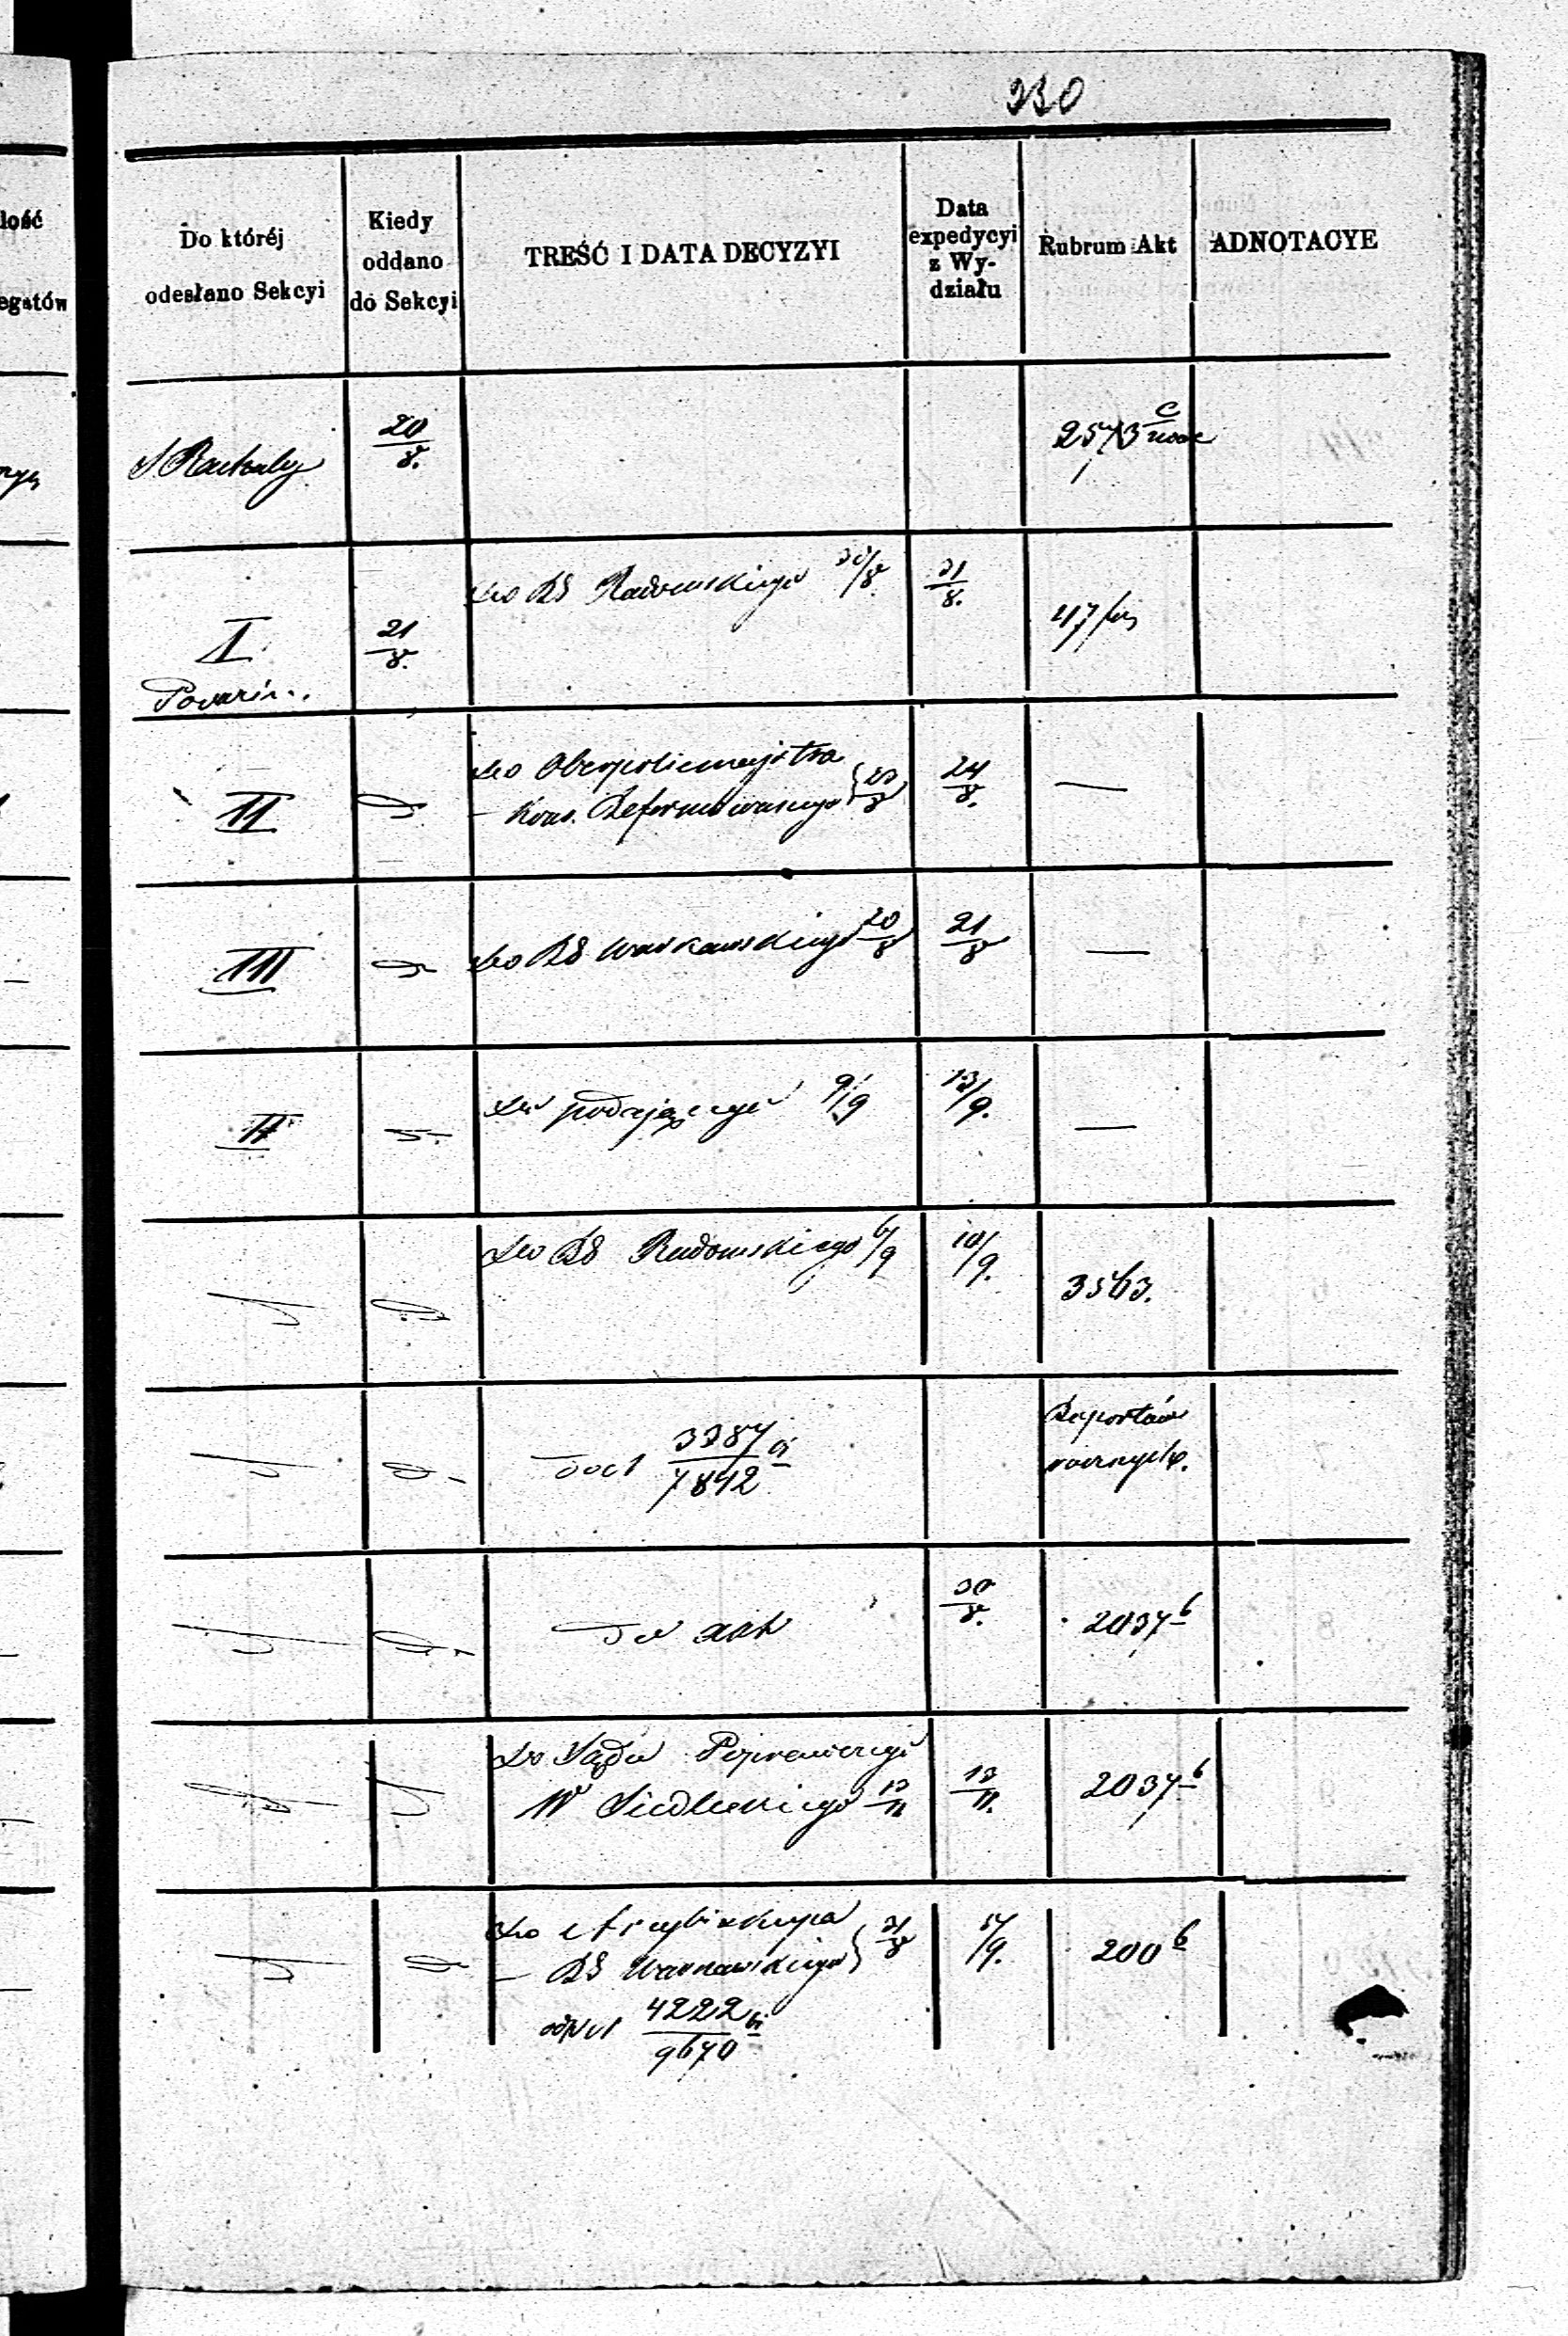 230
lość
egatów
Do któréj
odesłano Sekcyi
Kiedy
oddano
do Sekcyi
TREŚĆ I DATA DECYZYI
Data
expedycyi
z Wy-
działu
Rubrum Akt
ADNOTACYE
20/8.
2573
I
21/8.
Do RG Radomskiego 30/8
31/8.
47
II
Do Oberpolicmajstra
— Kons. Reformowanego } 23/8
24/8.
—
III
Do RG Warszawskiego 20/8
21/8
—
II
Do podającego 9/9
13/9.
—
Do RG Radomskiego 6/9
10/9.
3563.
3387/7842
Raportów
różnych.
Do akt
30/8.
2037 b
Do Sądu Poprawczego
W Siedleckiego 13/11
13/11.
2037 b
Do Arcybiskupa
— RG Warszawskiego } 31/8
5/9.
200 b
odpis 4222/9670